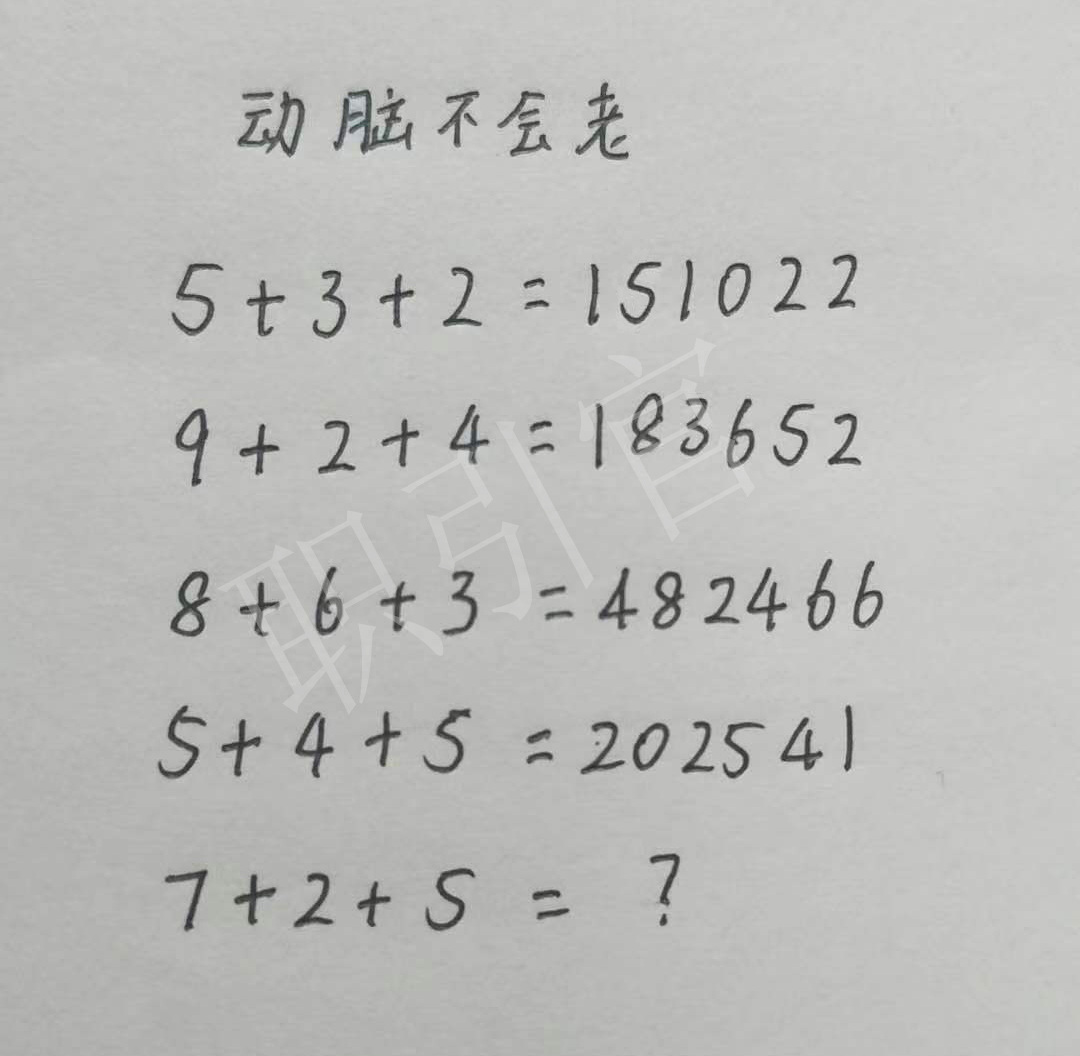 动脑不会老
5+3+2=151022
9+2+4=183652
8+6+3=482466
5+4+5=202541
7+2+5=?
职引官